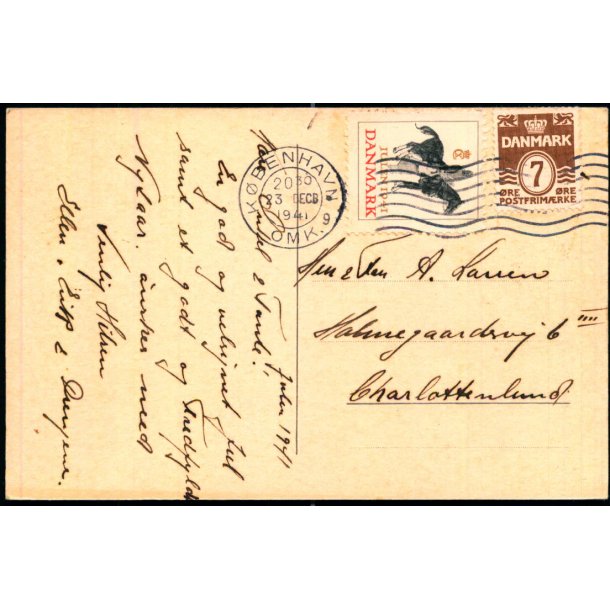 Julen 1941
Kære Onkel & Tante!
En god og velsignet Jul
samt et godt og Fredfyldt
Nytaar ønskes med
Venlig Hilsen
Ellen, Erik & Drengene.
KØBENHAVN
2030
23 DECB
1941
OMK. 9
JULEN 1941
DANMARK
DANMARK
7
ØRE ØRE
POSTFRIMÆRKE
Hr & Fru A. Larsen
Holmegaardsvej 6 III
Charlottenlund